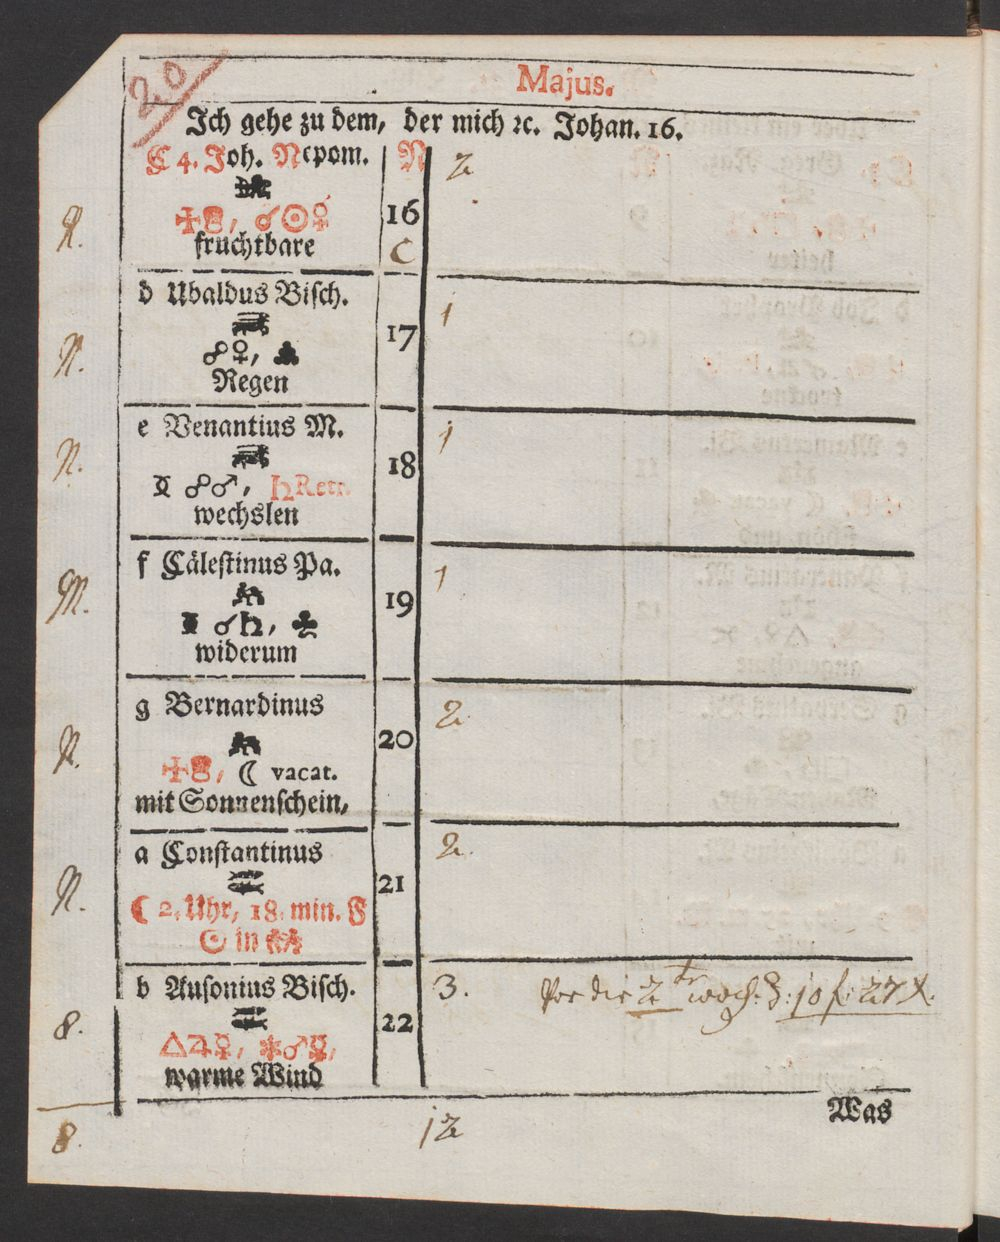 20
Majus.
Ich gehe zu dem, der mich ꝛc. Johan. 16.
E 4. Joh. Nepom. N 2
N. ✠, ☌☉♀ 16
fruchtbare C
d Ubaldus Bisch. 1
N. ☍♀, 17
Regen
e Venantius M. 1
N. 18
☍♂, ♄Retr.
wechslen
f Cälestinus Pa. 1
N. ☌♄, 19
widerum
g Bernardinus 2
N. 20
✠, ☾ vacat.
mit Sonnenschein,
a Constantinus 2
N. 21
☾ 2. Uhr, 18. min. F
☉ in
b Ausonius Bisch. 3. Por die 2te woch: 3: 10 f: 27 x.
8. 22
△♃☿, ✱♂☿,
warme Wind
Was
8. 12